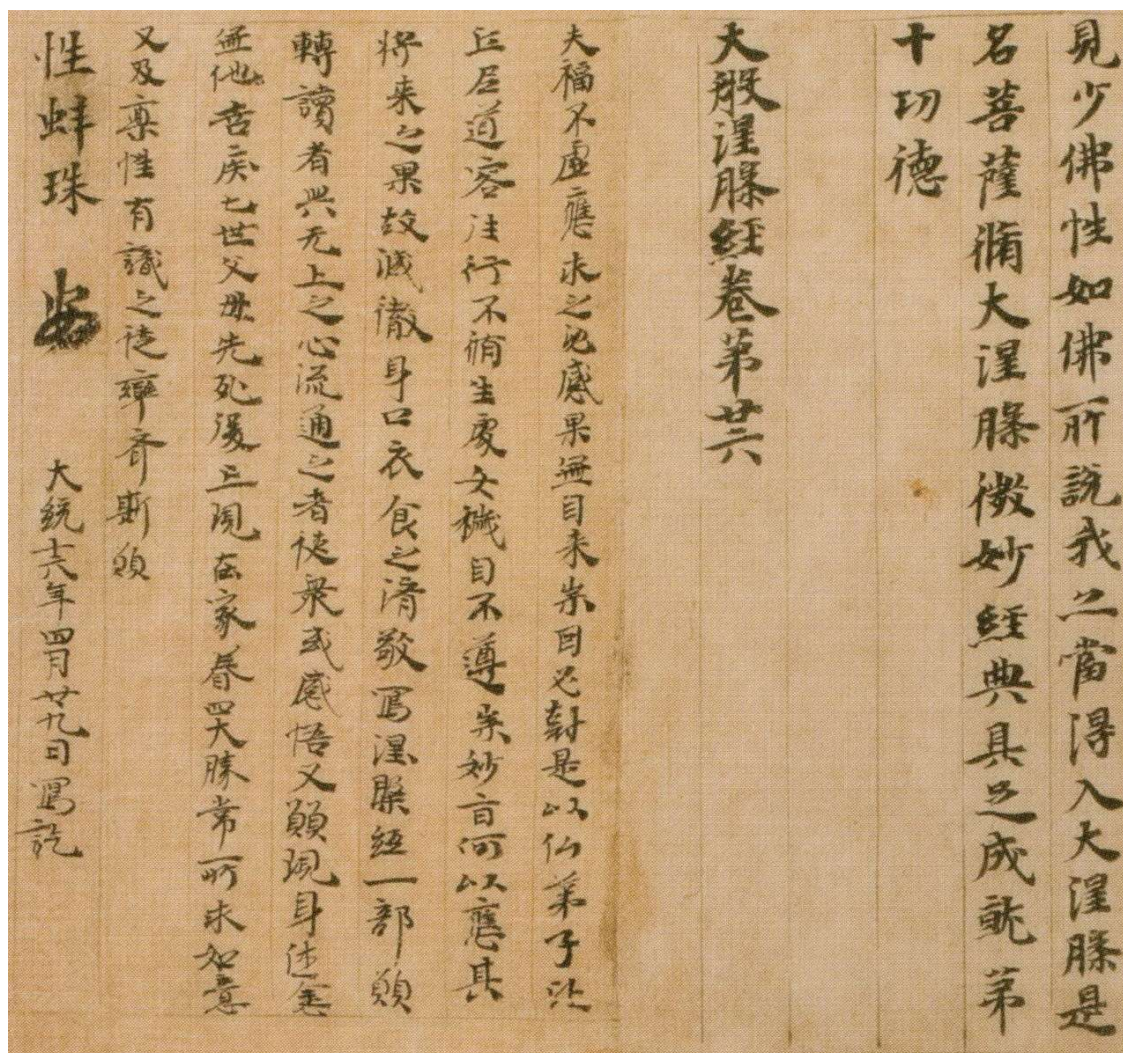 見少佛性如佛所說我亦當得入大涅槃是
名菩薩脩大涅槃微妙經典具足成就第
十功德
大般涅槃經卷第廿六
夫福不虛應求之必感果無自来崇因必剋是以仏弟子比
丘尼道容往行不脩生處女穢自不遵崇妙旨何以應其
将来之果故減徹身口衣食之資敬寫涅槃經一部願
轉讀者興无上之心流通之者使衆或感悟又願現身住念
無他苦疾七世父母先死後亡現在家眷四大勝常所求如意
又及稟性有識之徒率齊斯願
性蚌珠
大統十六年四月廿九日寫訖